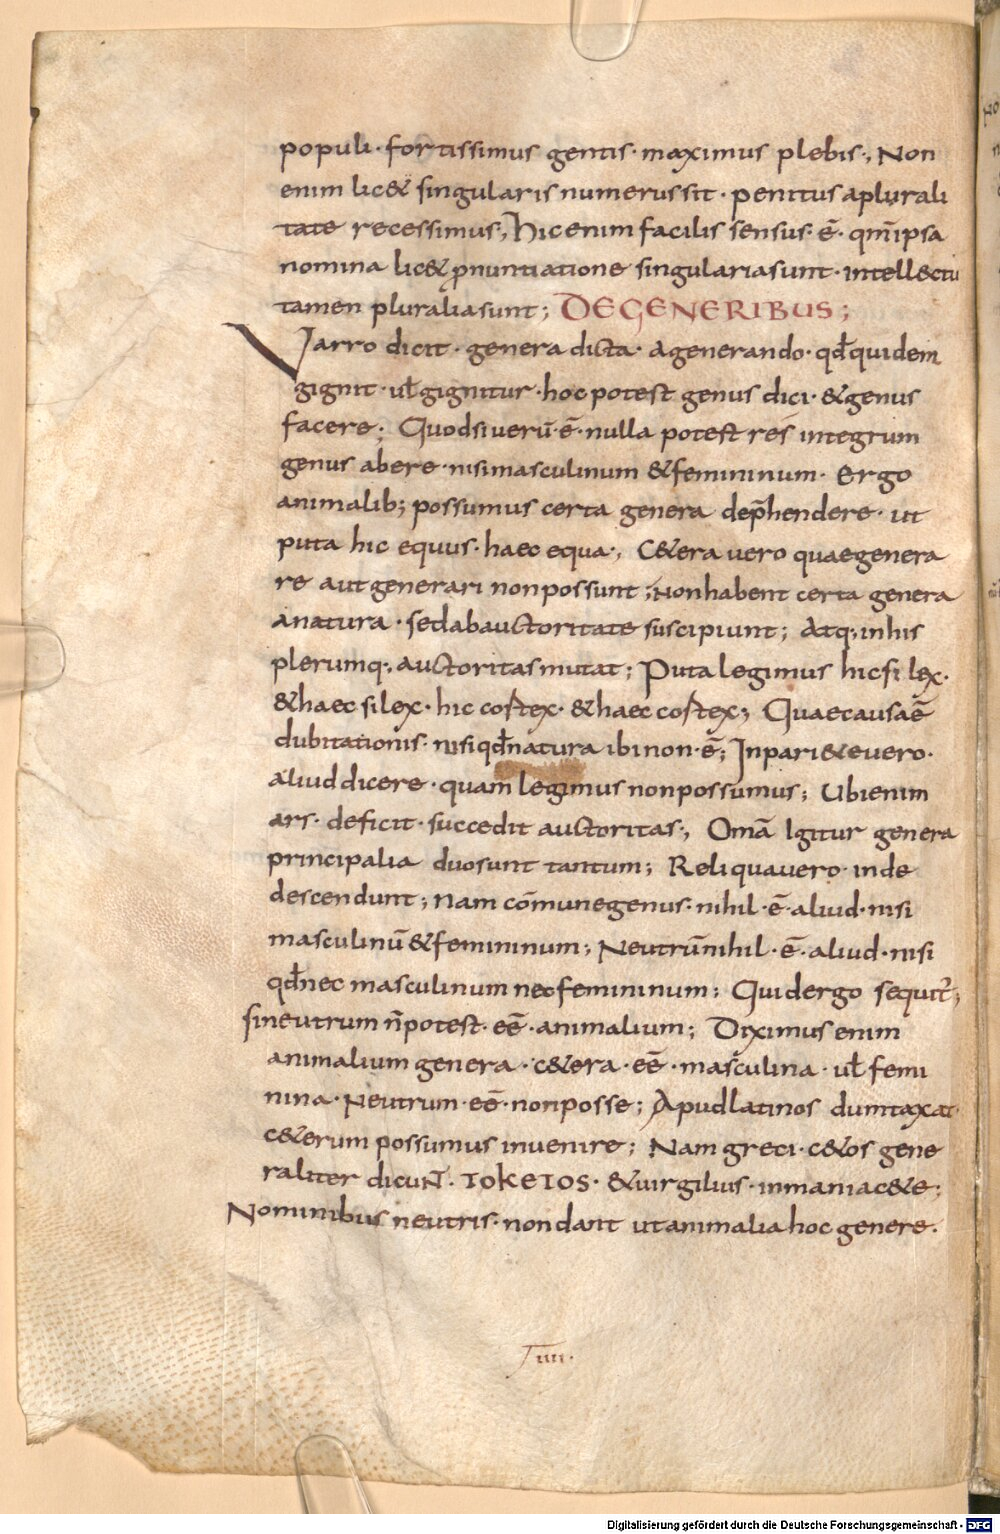 populi· fortissimus gentis· maximus plebis·, Non
enim lic& singularis numerus sit· penitus a plurali
tate recessimus·, Hic enim facilis sensus· ē· qm̄ ipsa
nomina lic& ꝓnuntiatione singularia sunt· intellectu
tamen pluralia sunt; DE GENERIBUS;
Varro dicit· genera dicta· a generando· qd̄ quidem
gignit· ul̄ gignitur· hoc potest genus dici· & genus
facere; Quod si uerū· ē· nulla potest res integrum
genus abere· nisi masculinum & femininum· Ergo
animalib; possumus certa genera dep̄hendere· ut
puta hic equus· haec equa·, C&era uero quae genera
re aut generari non possunt; Non habent certa genera
a natura· sed ab auctoritate suscipiunt; Atq; in his
plerumq;, auctoritas mutat; Puta legimus hic si lex·
& haec silex· hic cortex· & haec cortex; Quae causa ē
dubitationis· nisi qd̄ natura ibi non· ē; In pari&e uero·
aliud dicere· quam legimus non possumus; Ubi enim
ars· deficit· succedit auctoritas·, Omā Igitur genera
principalia duo sunt tantum; Reliqua uero· inde
descendunt; Nam cōmune genus· nihil· ē· aliud· nisi
masculinū & femininum; Neutrū nihil· ē· aliud· nisi
qd̄ nec masculinum nec femininum; Quid ergo sequit̄;
si neutrum n̄ potest· eē· animalium; Diximus enim
animalium genera· c&era· eē· masculina· ul̄ femi
nina· Neutrum· eē· non posse; Apud latinos dumtaxat
c&erum possumus inuenire; Nam greci· c&os gene
raliter dicuN̄· TOKETOS· & uirgilius· in mania c&e;
Nominibus neutris· non dant ut animalia hoc genere·
IIII·
Digitalisierung gefördert durch die Deutsche Forschungsgemeinschaft - DFG